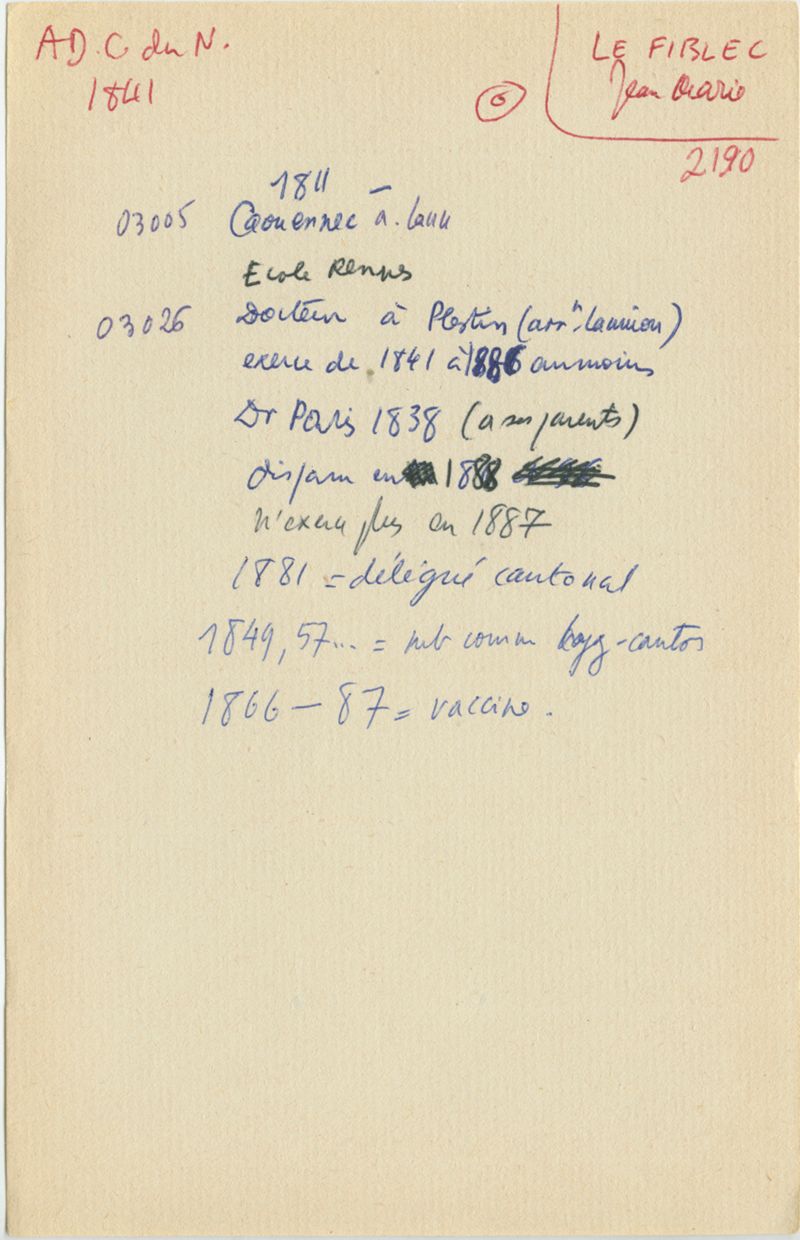 AD. C du N.
1841
6
LE FIBLEC
Jean Marie
2190
1811 –
03005 Caouennec a. Lann
Ecole Rennes
03026 Docteur à Plestin (arrn. Lannion)
exerce de 1841 à 1886 au moins
Dr Paris 1838 (a ses parents)
disparu en 1888
n'exerce plus en 1887
1881 = délégué cantonal
1849, 57... = mb comm hyg-canton
1866 – 87 = vaccine.